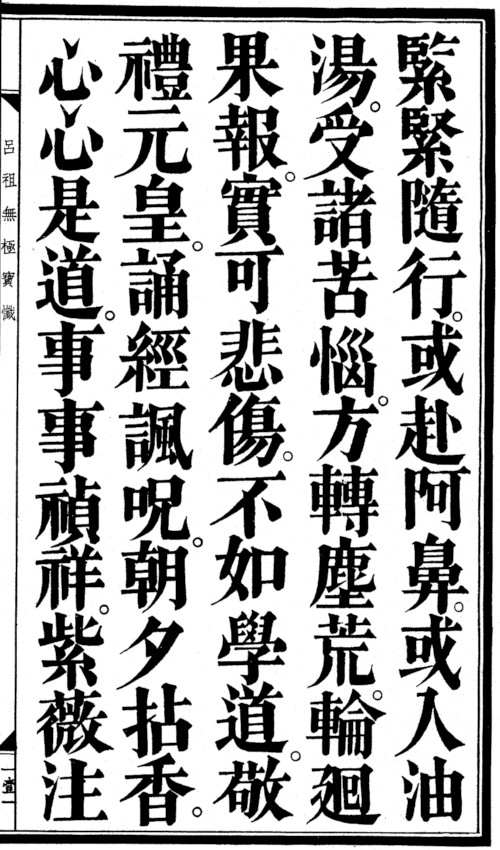 緊緊隨行。或赴阿鼻。或入油
湯。受諸苦惱。方轉塵荒。輪廻
果報。實可悲傷。不如學道。敬
禮元皇。誦經諷呪。朝夕拈香。
心心是道。事事禎祥。紫薇注
呂祖無極寶懺